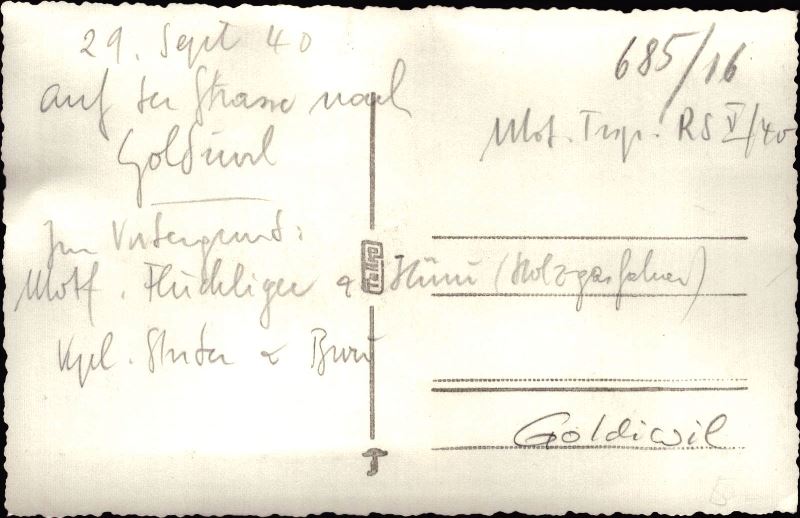 29. Sept 40
auf der Strasse nach
Goldiwil
Im Vordergrund:
Motf. Flückiger & (Holzgasfahrer)
Kpl. Studer &
685/16
Mot. Trsp. RS V/40
Goldiwil